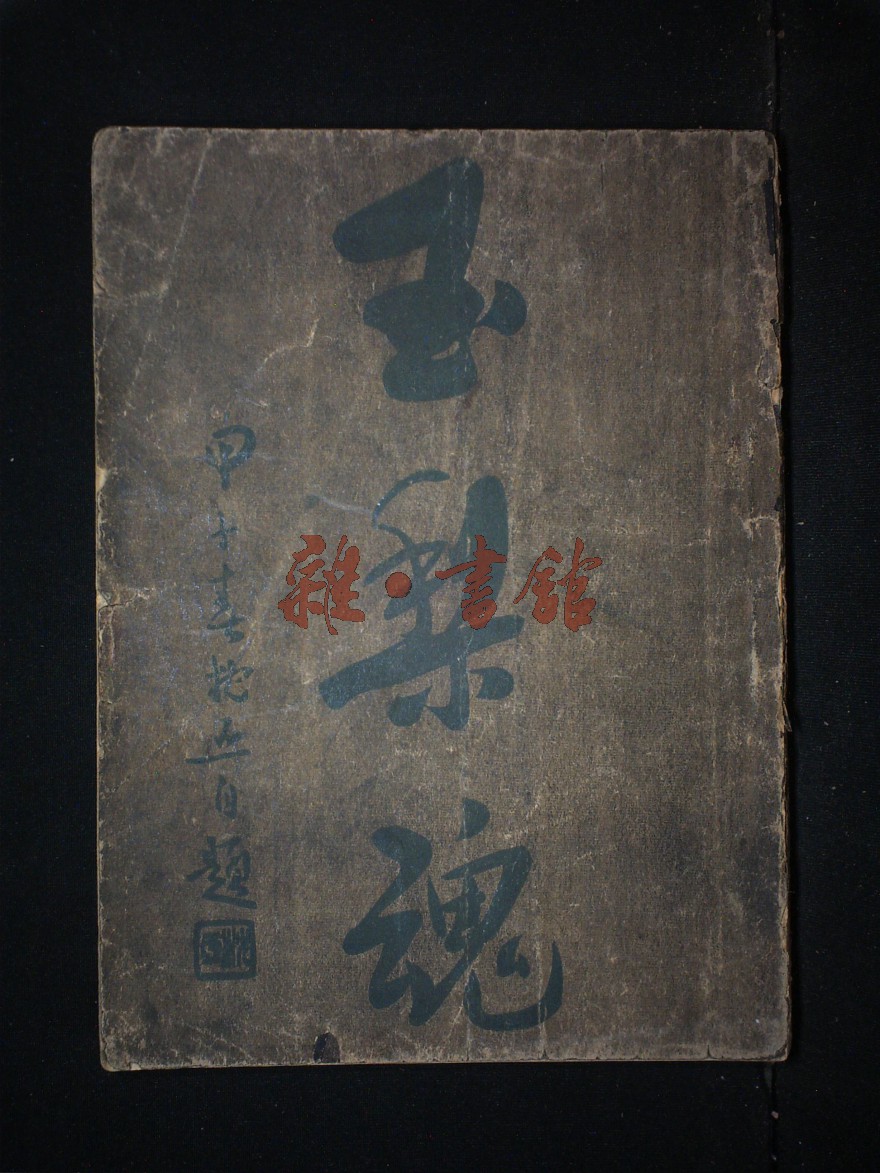 玉梨魂
甲子春枕亞自題
雜·書館